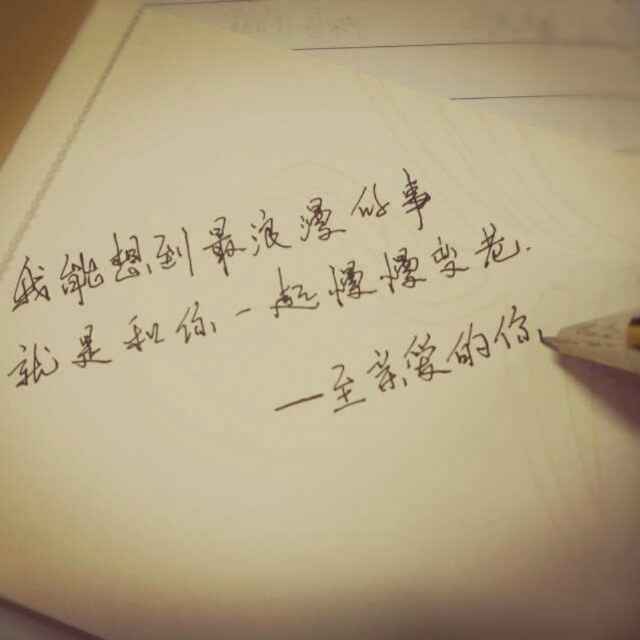 我能想到最浪漫的事
就是和你一起慢慢变老.
—至亲爱的你